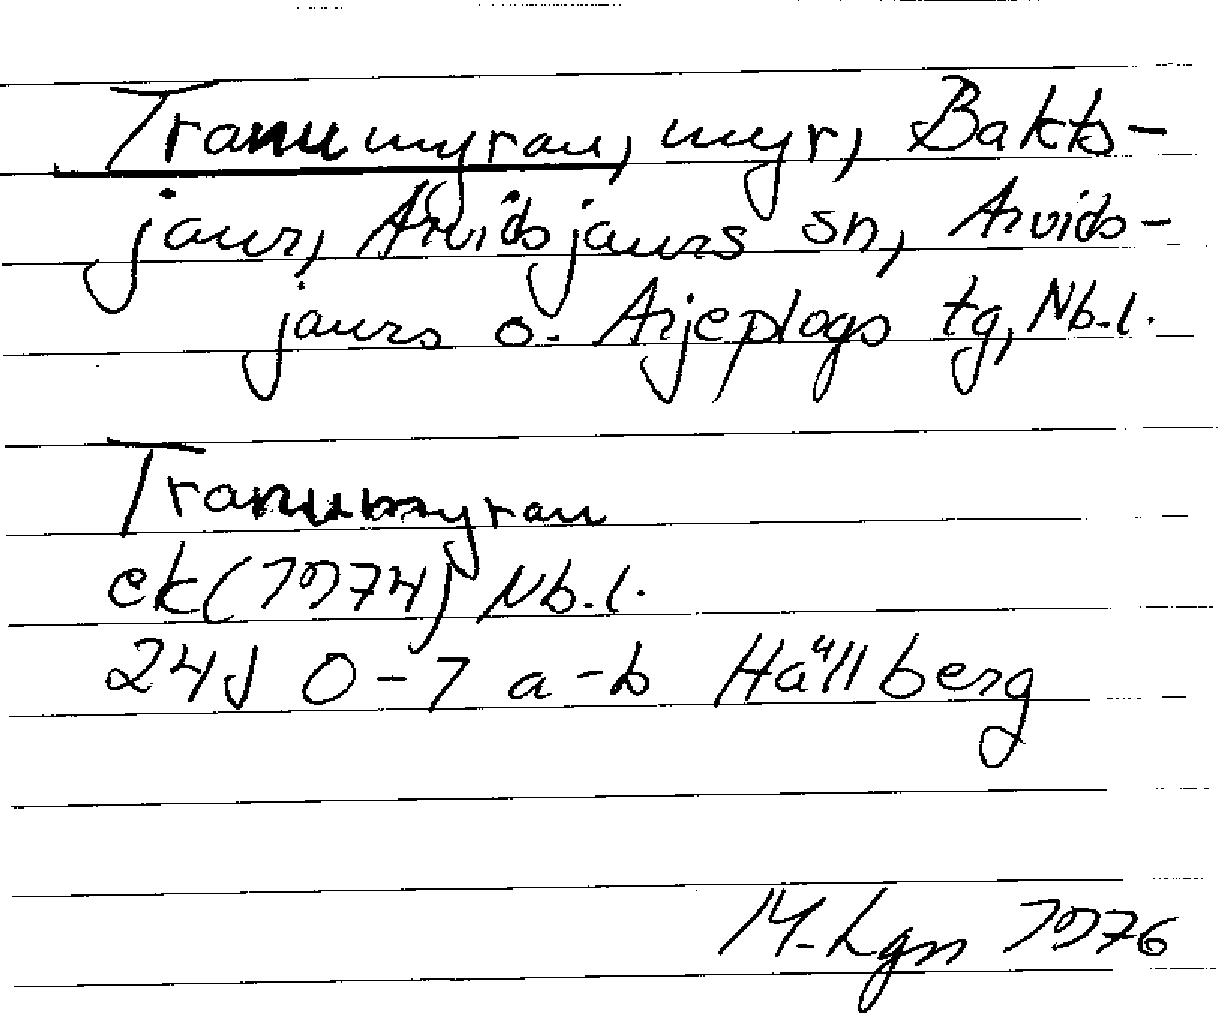 Tranumyran, myr, Bakts-
jaur, Arvidsjaurs sn, Arvids-
jaurs o. Arjeplogs tg, Nb.l.
Tranumyran
ek (1974) Nb.l.
24J 0-1 a-b Hällberg
M-Lgn 1976